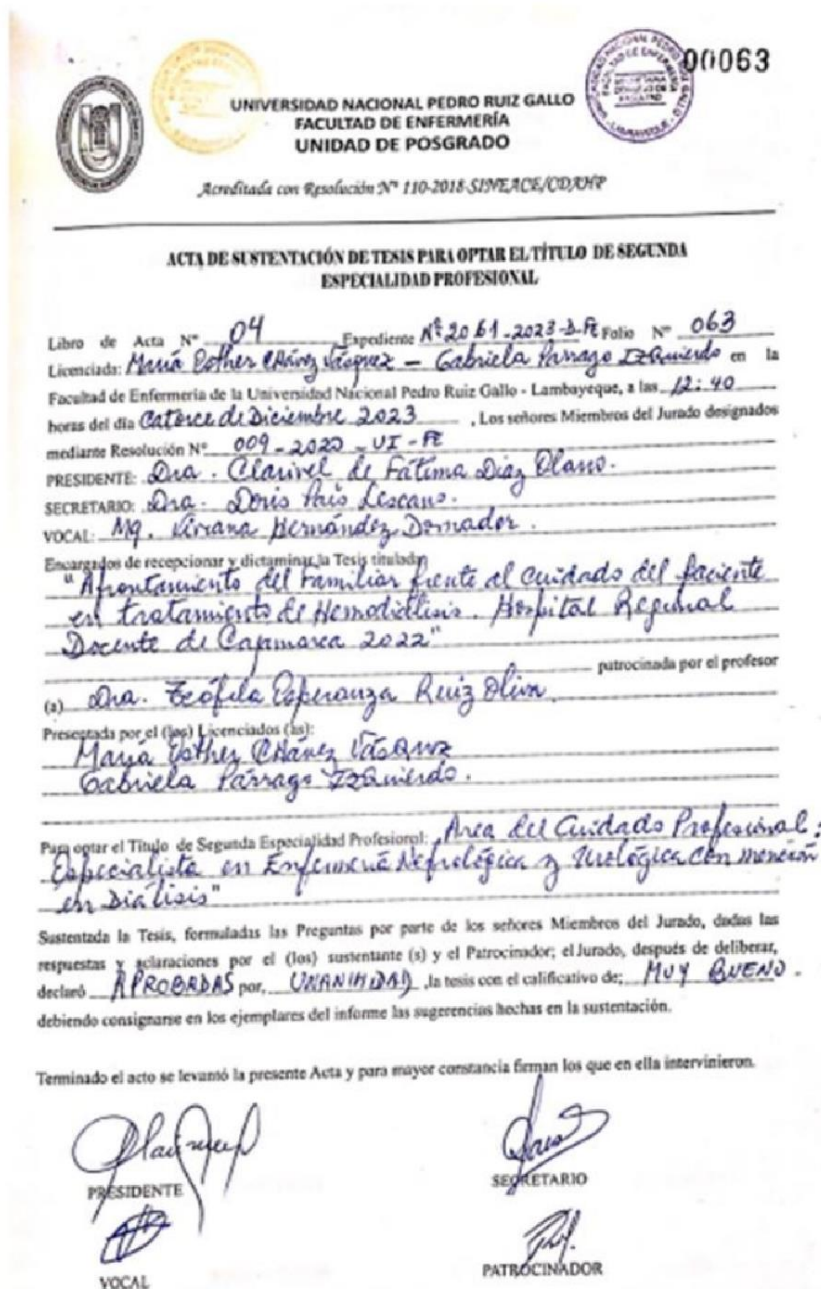 00063
UNIVERSIDAD NACIONAL PEDRO RUIZ GALLO
FACULTAD DE ENFERMERÍA
UNIDAD DE POSGRADO
Acreditada con Resolución Nº 110-2018-SINEACE/CDAHP
ACTA DE SUSTENTACIÓN DE TESIS PARA OPTAR EL TÍTULO DE SEGUNDA
ESPECIALIDAD PROFESIONAL
Libro de Acta Nº 04 Expediente Nº 2061-2023-D-FE Folio Nº 063
Licenciada: María Esther Chávez Vásquez — Gabriela Párraga Izquierdo en la
Facultad de Enfermería de la Universidad Nacional Pedro Ruiz Gallo - Lambayeque, a las 12:40
horas del día Catorce de Diciembre 2023 , Los señores Miembros del Jurado designados
mediante Resolución Nº 009-2022-UI-FE
PRESIDENTE: Dra. Clarivel de Fátima Díaz Olano.
SECRETARIO: Dra. Doris Lescano.
VOCAL: Mg. Viviana Hernández Domador.
Encargados de recepcionar y dictaminar, la Tesis titulada:
"Afrontamiento del Familiar frente al cuidado del paciente
en tratamiento de Hemodiálisis. Hospital Regional
Docente de Cajamarca 2022"
patrocinada por el profesor
(a) Dra. Teófila Esperanza Ruiz Oliva
Presentada por el (los) Licenciados (as):
María Esther Chávez Vásquez
Gabriela Párraga Izquierdo.
Para optar el Título de Segunda Especialidad Profesional: Area del Cuidado Profesional:
Especialista en Enfermería Nefrológica y Urológica con mención
en Diálisis"
Sustentada la Tesis, formuladas las Preguntas por parte de los señores Miembros del Jurado, dadas las
respuestas y aclaraciones por el (los) sustentante (s) y el Patrocinador; el Jurado, después de deliberar,
declaró APROBADAS por, UNANIMIDAD ,la tesis con el calificativo de; MUY BUENO .
debiendo consignarse en los ejemplares del informe las sugerencias hechas en la sustentación.
Terminado el acto se levantó la presente Acta y para mayor constancia firman los que en ella intervinieron.
PRESIDENTE
SECRETARIO
VOCAL
PATROCINADOR